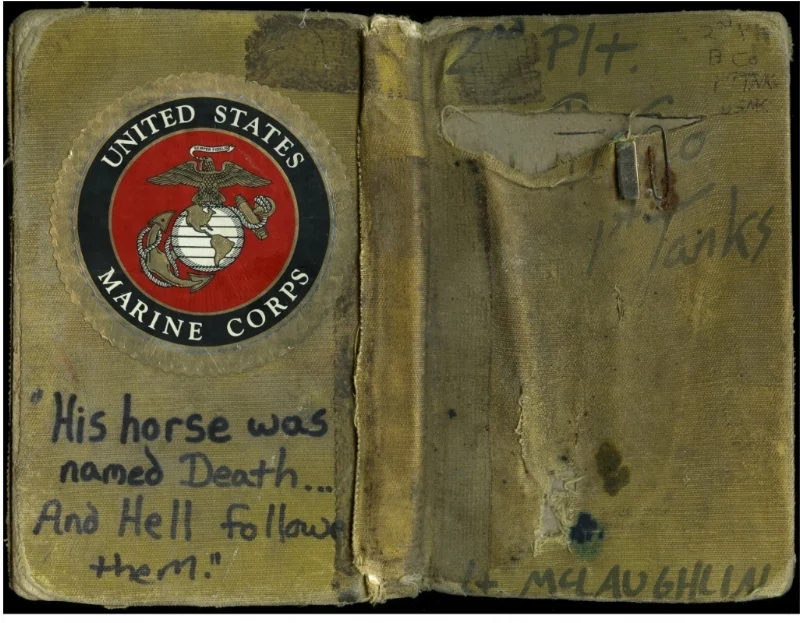 UNITED STATES
MARINE CORPS
"His horse was
named Death...
And Hell followe
them."
2nd Plt.
B Co
1st Tanks
lt McLAUGHLIN
2nd
B Co
1st TANK